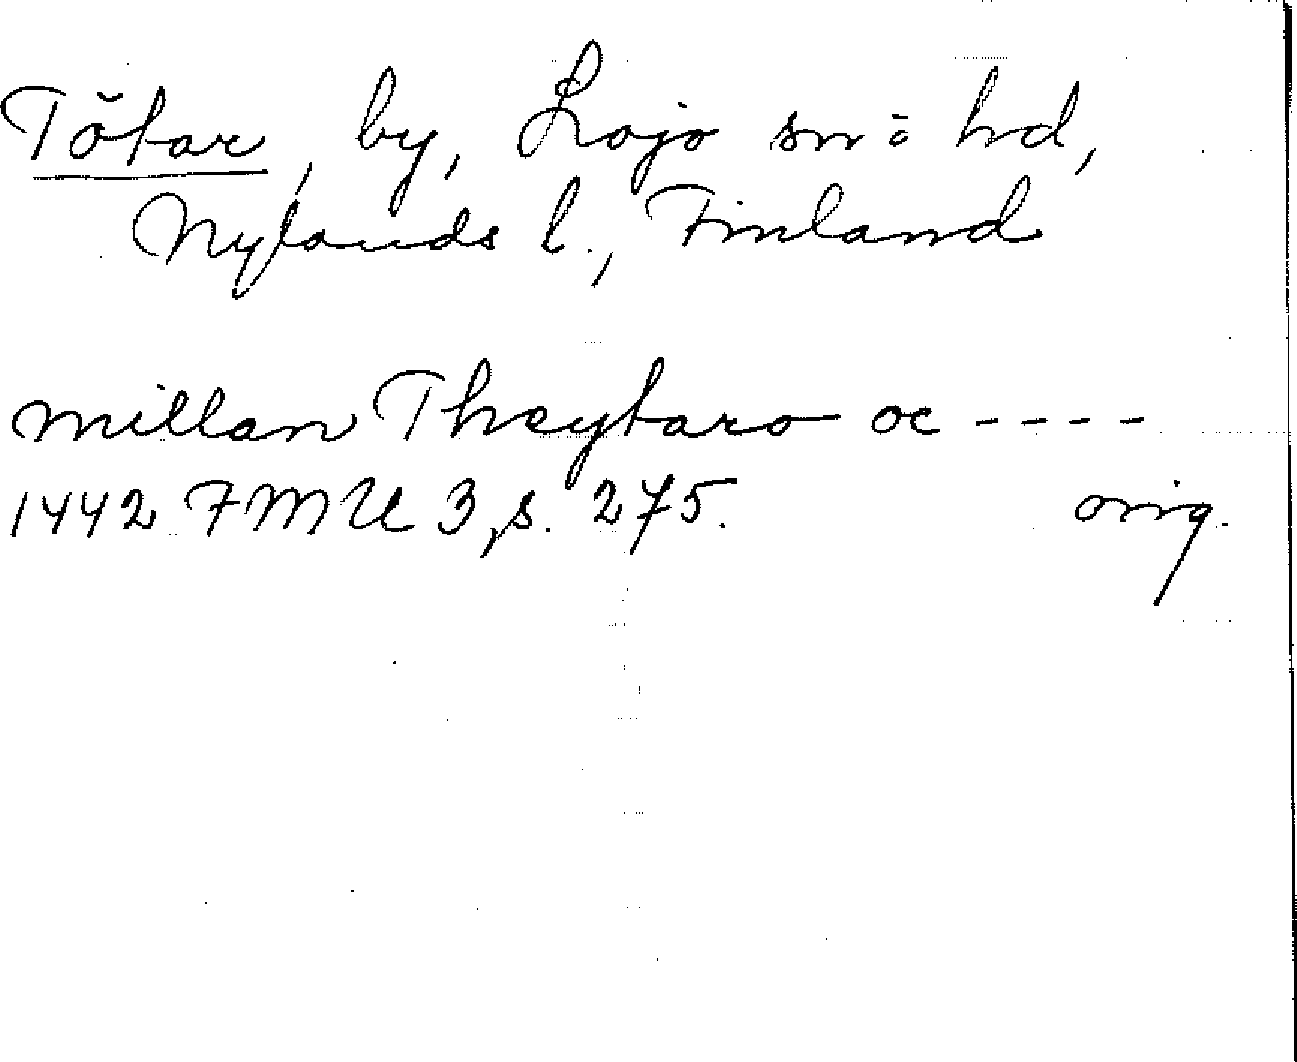 Tötar, by, Lojo sn o hd,
Nylands l., Finland
millan Theytaro oc ----
1442 FMU 3, s. 275. orig.